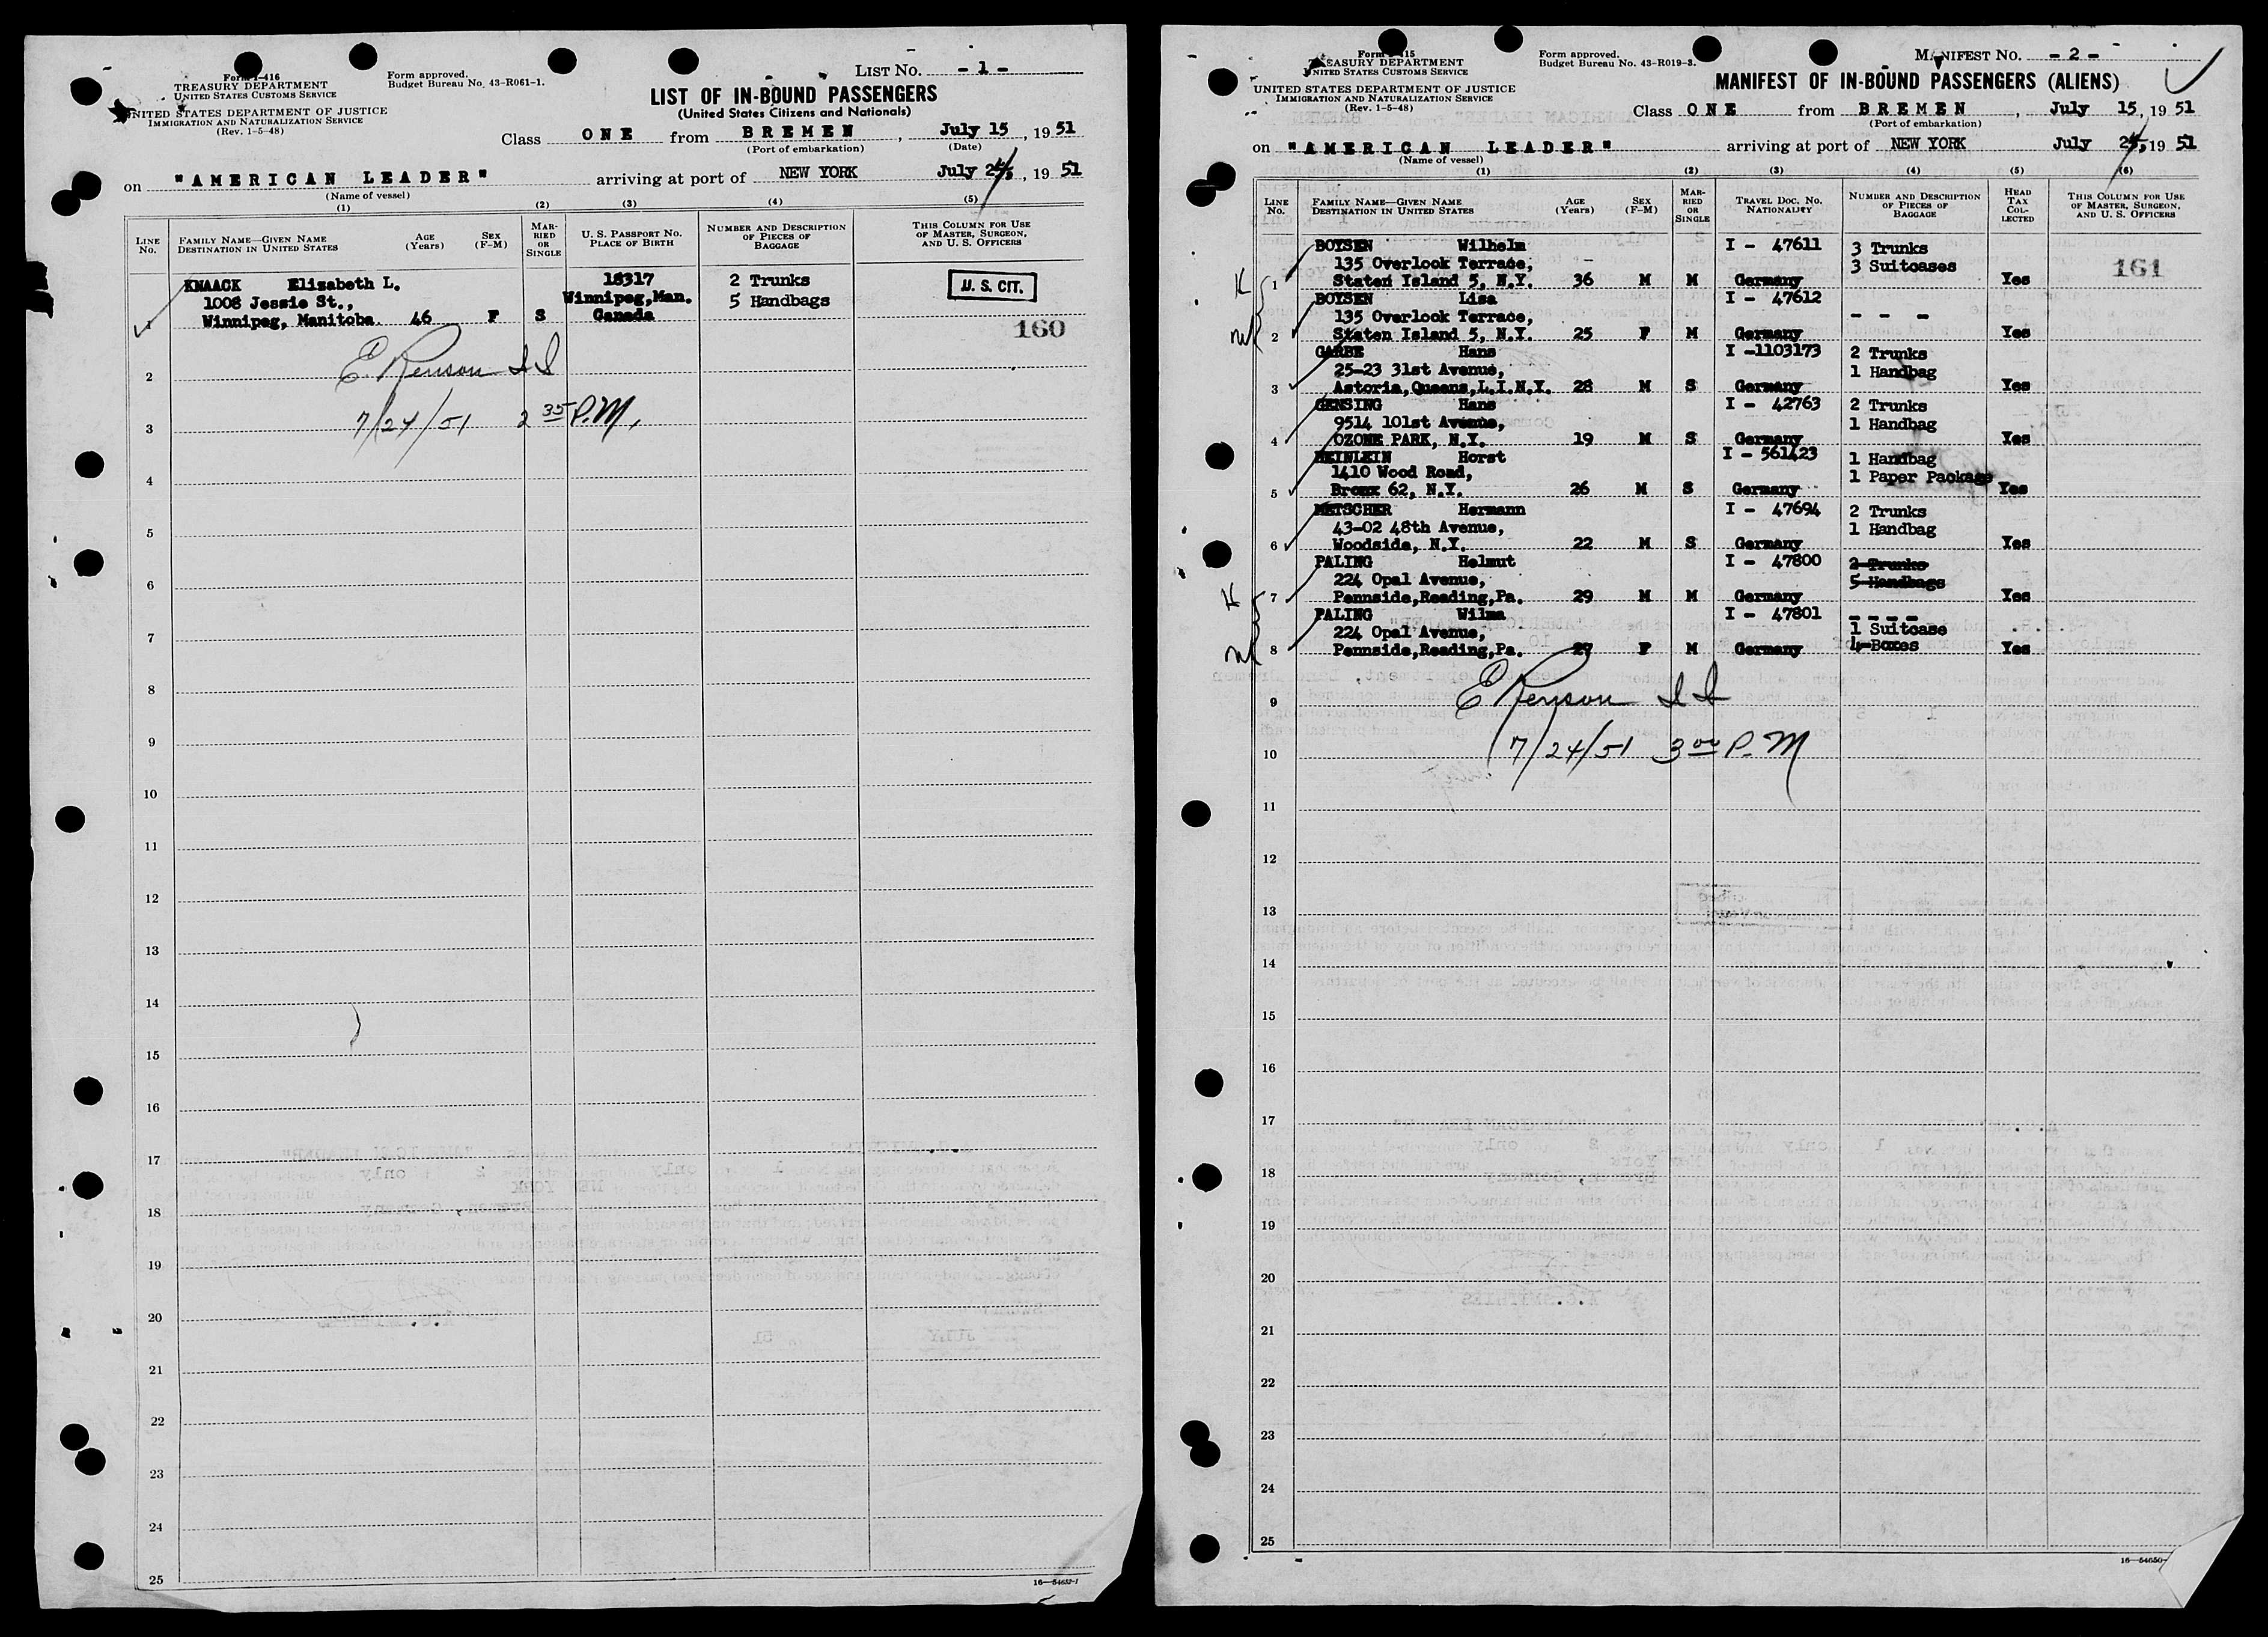 Form I-416
TREASURY DEPARTMENT
UNITED STATES CUSTOMS SERVICE
UNITED STATES DEPARTMENT OF JUSTICE
IMMIGRATION AND NATURALIZATION SERVICE
(Rev. 1-5-48)
Form approved.
Budget Bureau No. 43-R061-1.
LIST No. - 1 -
LIST OF IN-BOUND PASSENGERS
(United States Citizens and Nationals)
Class ONE from BREMEN, July 15, 1951
(Port of embarkation) (Date)
on "AMERICAN LEADER" arriving at port of NEW YORK July 24, 1951
(Name of vessel)
(1) (2) (3) (4) (5)
LINE No. FAMILY NAME—GIVEN NAME DESTINATION IN UNITED STATES AGE (Years) SEX (F-M) MARRIED OR SINGLE U. S. PASSPORT NO. PLACE OF BIRTH NUMBER AND DESCRIPTION OF PIECES OF BAGGAGE THIS COLUMN FOR USE OF MASTER, SURGEON, AND U. S. OFFICERS
KNAACK Elizabeth L. 18317 2 Trunks U. S. CIT.
1008 Jessie St., Winnipeg, Man. 5 Handbags
1 Winnipeg, Manitoba 46 F S Canada 160
E. Renson I I
2
7/24/51 2 35 P.M.
3
4
5
6
7
8
9
10
11
12
13
14
15
16
17
18
19
20
21
22
23
24
25
16—54652-1
Form I-415
TREASURY DEPARTMENT
UNITED STATES CUSTOMS SERVICE
UNITED STATES DEPARTMENT OF JUSTICE
IMMIGRATION AND NATURALIZATION SERVICE
(Rev. 1-5-48)
Form approved.
Budget Bureau No. 43-R019-3.
MANIFEST NO. - 2 -
MANIFEST OF IN-BOUND PASSENGERS (ALIENS)
Class ONE from BREMEN, July 15, 1951
(Port of embarkation)
on "AMERICAN LEADER" arriving at port of NEW YORK July 24, 1951
(Name of vessel)
(1) (2) (3) (4) (5) (6)
LINE No. FAMILY NAME—GIVEN NAME DESTINATION IN UNITED STATES AGE (Years) SEX (F-M) MARRIED OR SINGLE TRAVEL DOC. NO. NATIONALITY NUMBER AND DESCRIPTION OF PIECES OF BAGGAGE HEAD TAX COLLECTED THIS COLUMN FOR USE OF MASTER, SURGEON, AND U. S. OFFICERS
BOYSEN Wilhelm I - 47611 3 Trunks
135 Overlook Terrace, 3 Suitcases 161
H 1 Staten Island 5, N.Y. 36 M M Germany Yes
BOYSEN Lisa I - 47612
135 Overlook Terrace, - - -
W 2 Staten Island 5, N.Y. 25 F M Germany Yes
GARBE Hans I -1103173 2 Trunks
25-23 31st Avenue, 1 Handbag
3 Astoria,Queens,L.I.N.Y. 28 M S Germany Yes
GENSING Hans I - 42763 2 Trunks
9514 101st Avenue, 1 Handbag
4 OZONE PARK, N.Y. 19 M S Germany Yes
HEINLEIN Horst I - 561423 1 Handbag
1410 Wood Road, 1 Paper Package
5 Bronx 62, N.Y. 26 M S Germany Yes
METSCHER Hermann I - 47694 2 Trunks
43-02 48th Avenue, 1 Handbag
6 Woodside, N.Y. 22 M S Germany Yes
PALING Helmut I - 47800 2 Trunks
224 Opal Avenue, 5 Handbags
H 7 Pennside,Reading,Pa. 29 M M Germany Yes
PALING Wilma I - 47801 - - - -
224 Opal Avenue, 1 Suitcase
W 8 Pennside,Reading,Pa. 27 F M Germany 4 Boxes Yes
E Renson I I
9
7/24/51 3 00 P.M
10
11
12
13
14
15
16
17
18
19
20
21
22
23
24
25
16—54650-